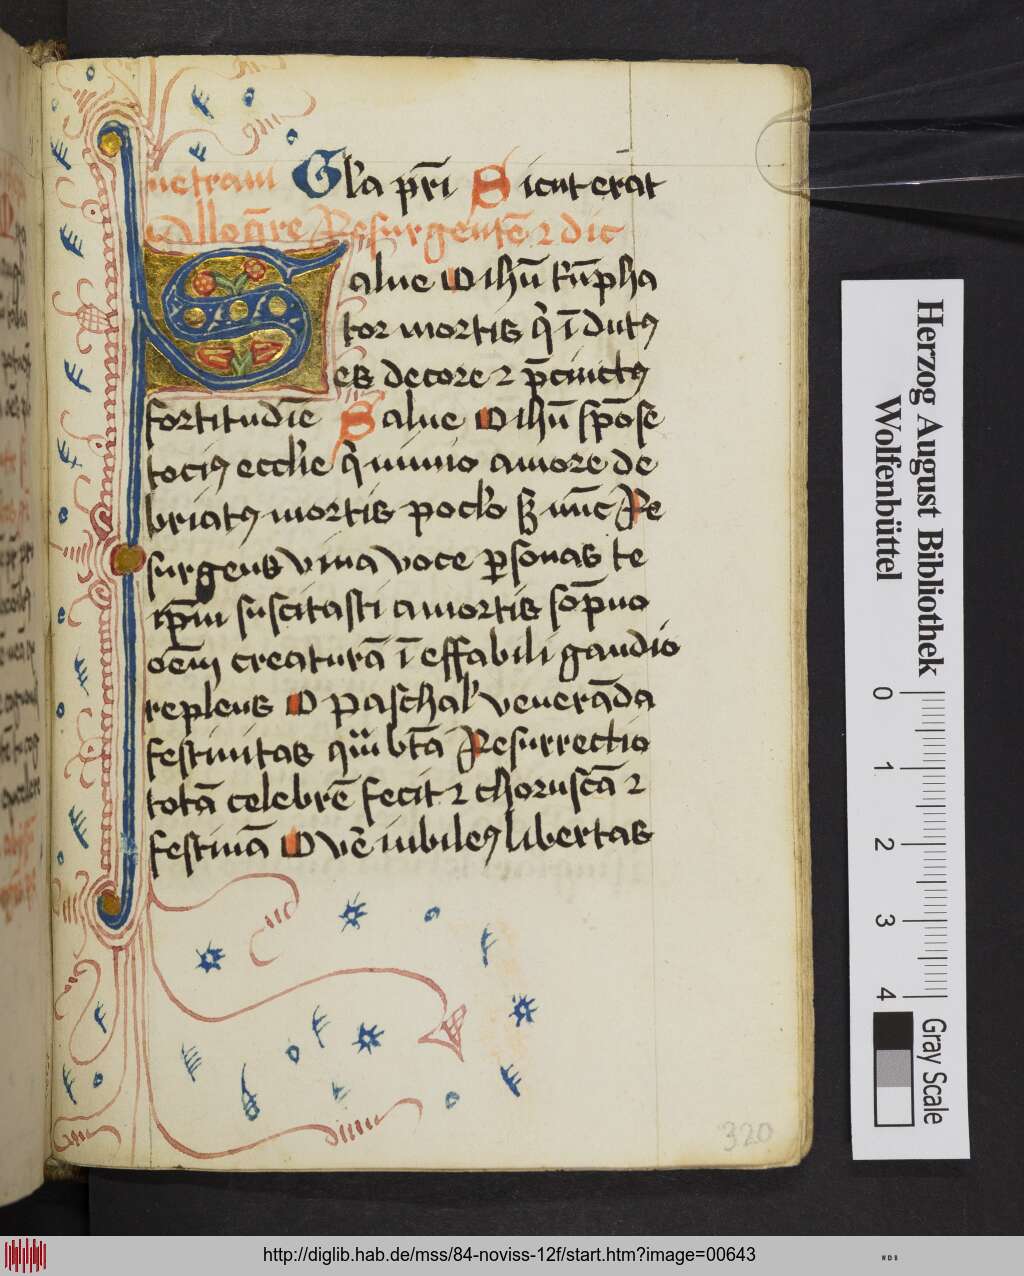 uetram Gl'a pr̄i Sicut erat
Allog̃re Resurgentē ⁊ dic
Salue O ihū tͥūpha
tor mortis q̇ ī dutꝰ
es decore ⁊ p̄cinctꝰ
fortitudīe Salue O ihū spōse
tociꝰ eccl'ie q̇ nimio amore de
briatꝰ mortis pocl'o sꝫ nūc Re
surgens viua voce ꝑsonas te
ip̄m suscitasti a mortis sop̄no
oēm creaturā ī effabili gaudio
replens O paschal' venerāda
festiuitas quā btā Resurrectio
totā celebrē fecit ⁊ choruscā ⁊
festiuā O vē iubileꝰ libertas
320
Herzog August Bibliothek
Wolfenbüttel
0 1 2 3 4
Gray Scale
http://diglib.hab.de/mss/84-noviss-12f/start.htm?image=00643